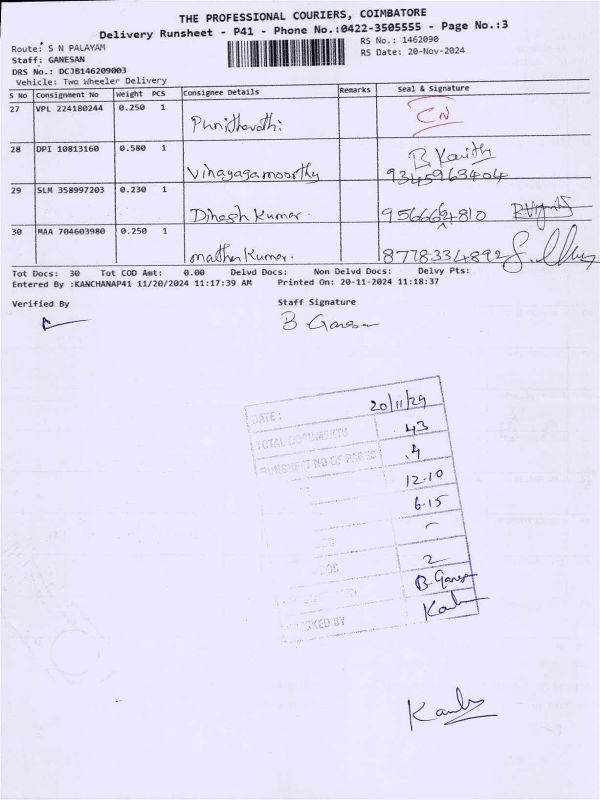 THE PROFESSIONAL COURIERS, COIMBATORE
Delivery Runsheet - P41 - Phone No.:0422-3505555 - Page No.:3
Route: S N PALAYAM
RS No.: 1462090
Staff: GANESAN
RS Date: 20-Nov-2024
DRS No.: DCJB146209003
Vehicle: Two Wheeler Delivery
S No Consignment No Weight PCS Consignee Details Remarks Seal & Signature
27 VPL 224180244 0.250 1 Punithavathi CN
28 DPI 10813160 0.580 1 Vinayagamoorthy B. Kavitha 9345963404
29 SLM 358997203 0.230 1 Dinesh Kumar.
30 MAA 704603980 0.250 1 8778334892
Tot Docs: 30 Tot COD Amt: 0.00 Delvd Docs: Non Delvd Docs: Delvy Pts:
Entered By :KANCHANAP41 11/20/2024 11:17:39 AM Printed On: 20-11-2024 11:18:37
Verified By Staff Signature
B Ganesan
DATE: 20/11/24
TOTAL DOCUMENTS 43
RUNSHEET NO OF PAGES 4
12.10
6.15
-
2
B. Ganesan